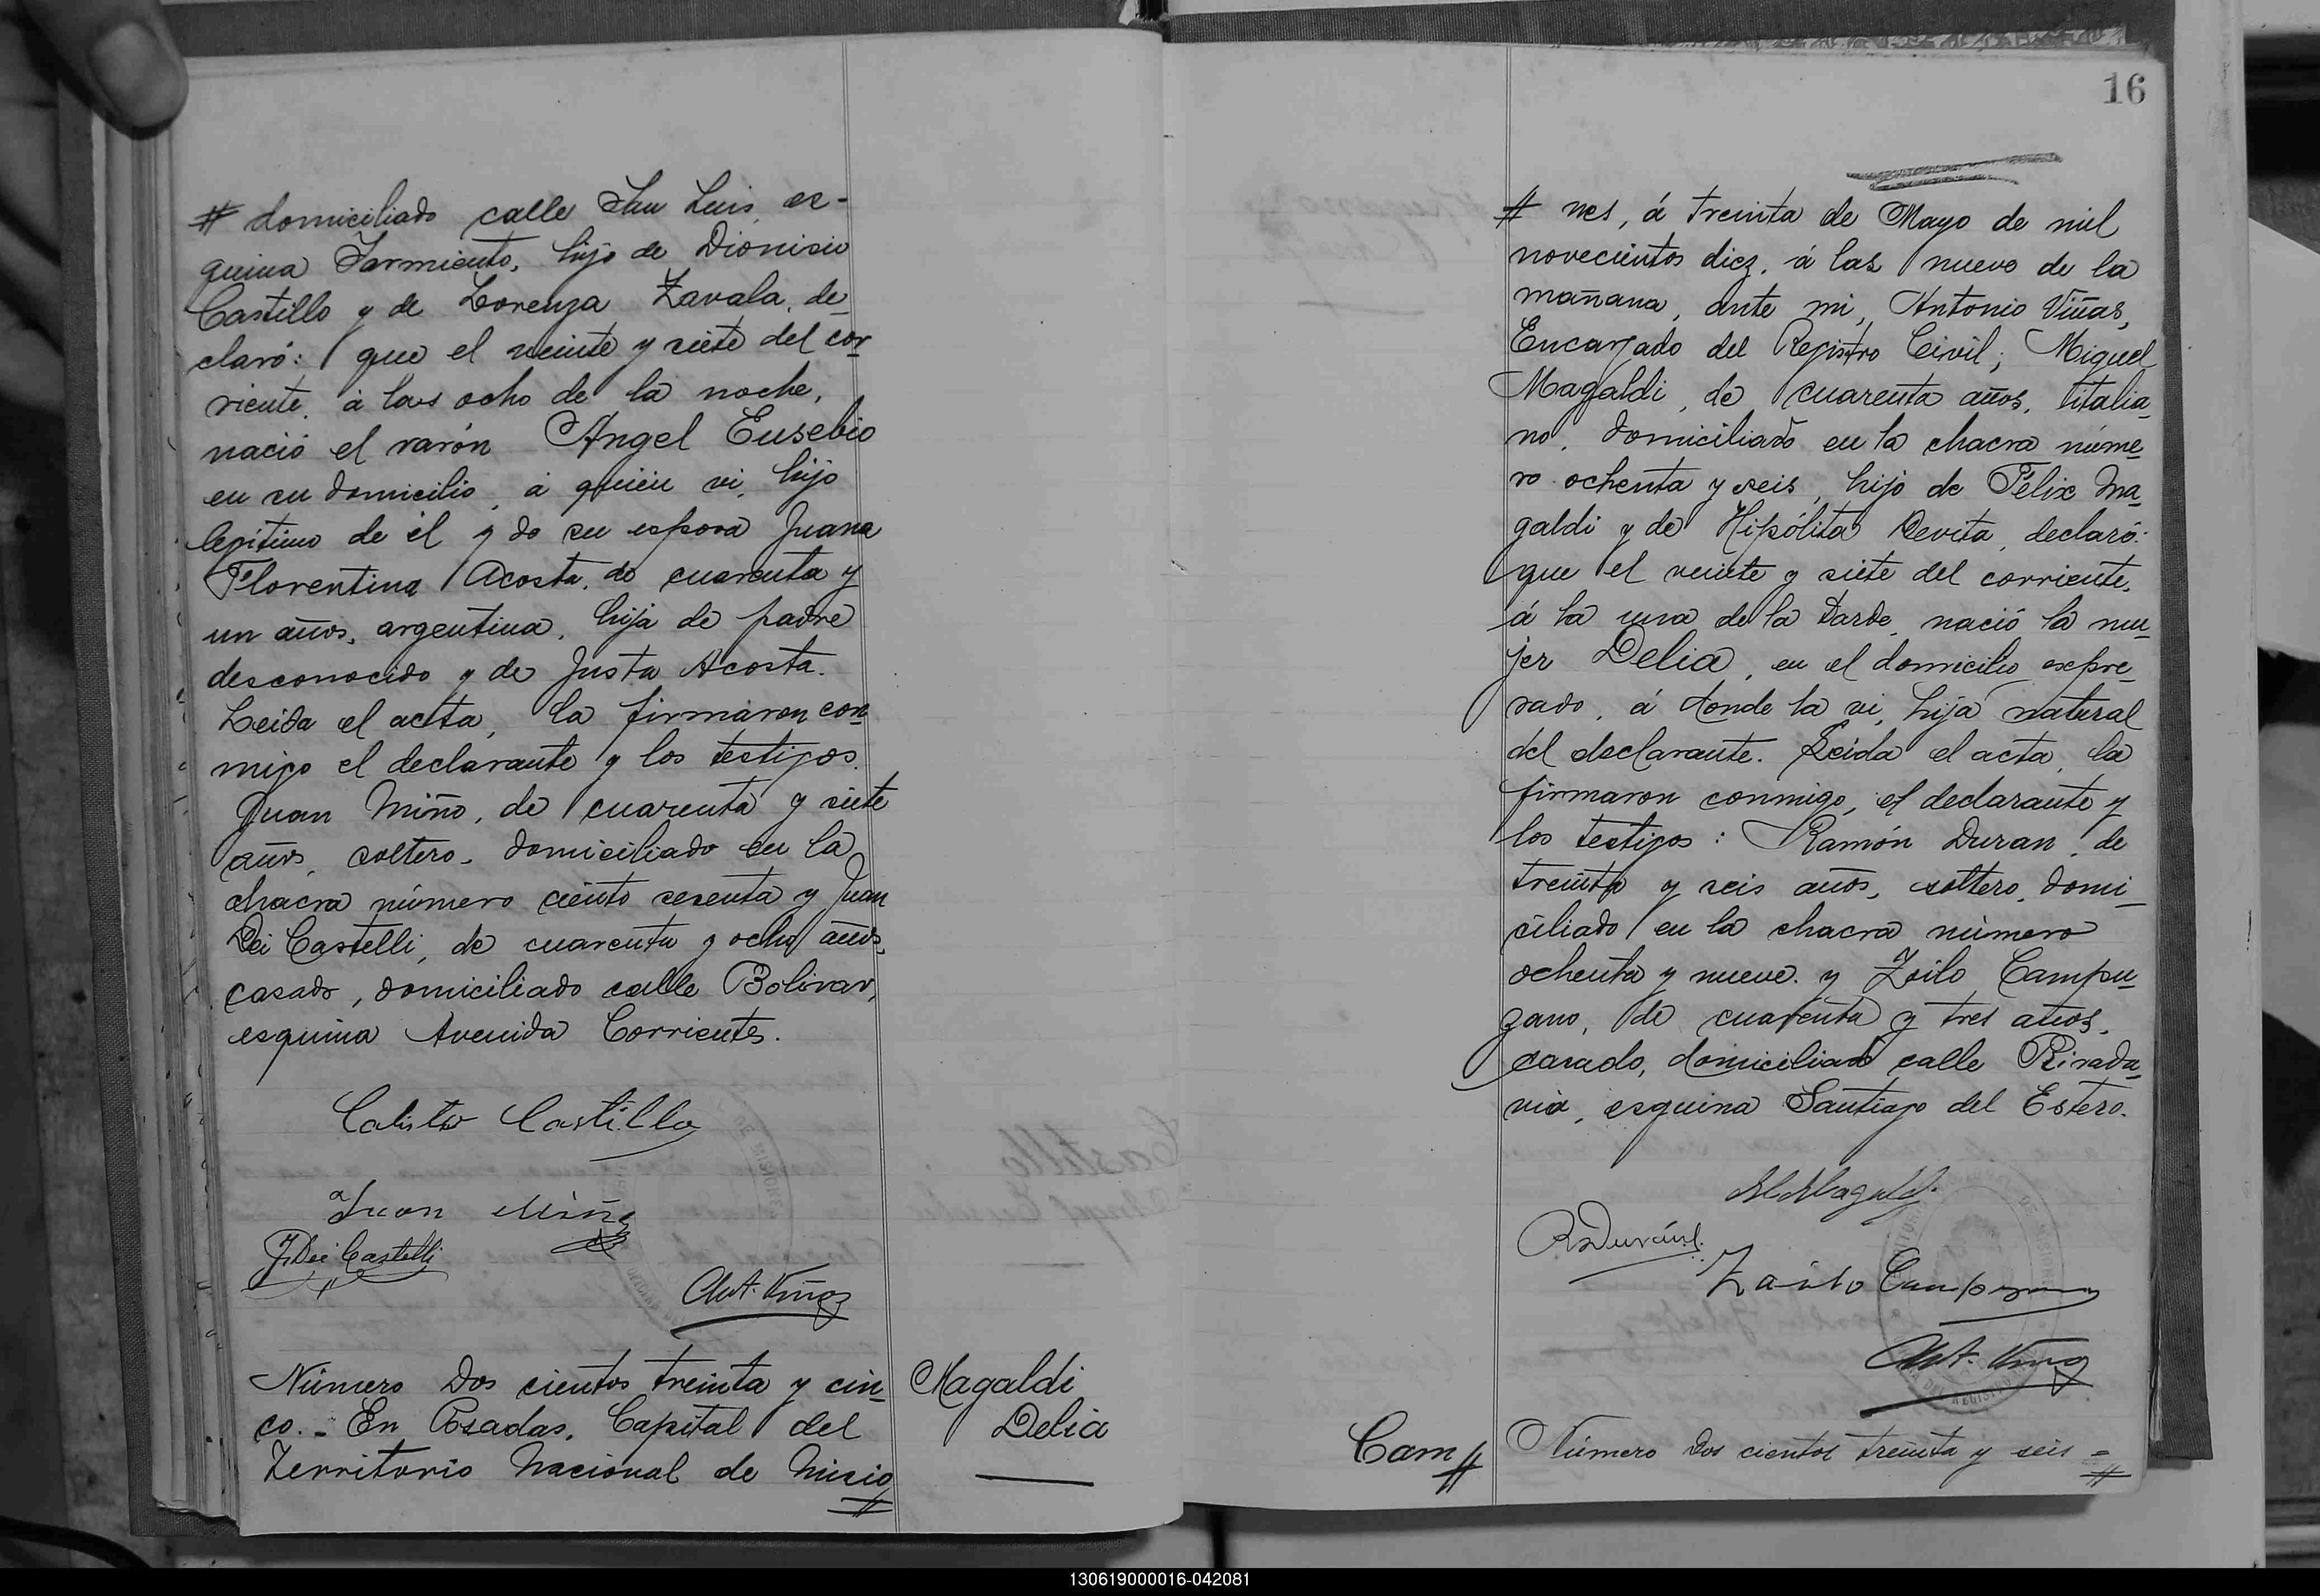 # domiciliado calle San Luis, es-
quina Sarmiento, hijo de Dionisio
Castillo y de Lorenza Zavala, de-
claró: que el veinte y siete del cor-
riente, á las ocho de la noche,
nació el varón Angel Eusebio
en su domicilio, á quien vi, hijo
legitimo de él y de su esposa Juana
Florentina Acosta, de cuarenta y
un años, argentina, hija de padre
desconocido y de Justa Acosta.
Leida el acta, la firmaron con-
migo el declarante y los testigos.
Juan Miño, de cuarenta y siete
años, soltero, domiciliado en la
chacra número ciento sesenta y Juan
Dei Castelli, de cuarenta y ocho años,
casado, domiciliado calle Bolivar,
esquina Avenida Corrientes.
Calisto Castillo
Juan Miño
J. Dei Castelli
Ant. Viñas
Número Dos cientos treinta y cin-
co.- En Posadas, Capital del
Territorio Nacional de Misio
#
Magaldi
Delia
16
# nes, á treinta de Mayo de mil
novecientos diez, á las nueve de la
mañana, ante mi, Antonio Viñas,
Encargado del Registro Civil; Miguel
Magaldi, de cuarenta años, italia-
no, domiciliado en la chacra núme-
ro ochenta y seis, hijo de Felix Ma-
galdi y de Hipólita Devita, declaró:
que el veinte y siete del corriente,
á la una de la tarde, nació la mu-
jer Delia, en el domicilio expre-
sado, á donde la vi, hija natural
del declarante. Leida el acta, la
firmaron conmigo, el declarante y
los testigos: Ramón Duran, de
treinta y seis años, soltero, domi-
ciliado en la chacra número
ochenta y nueve. y Zoilo Campu-
zano, de cuarenta y tres años,
casado, domiciliado calle Rivada-
via, esquina Santiago del Estero.
M Magaldi
R Durán
Zoilo Campuzano
Ant. Viñas
Cam #
Número Dos cientos treinta y seis =
#
130619000016-042081